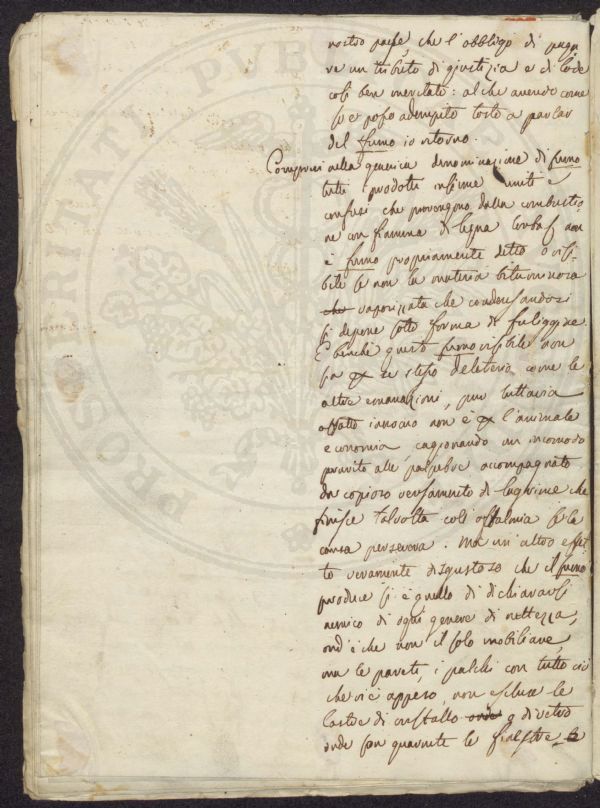 nostro paese, che l'obbligo di paga
re un tributo di giustizia e di lode
così ben meritato: al che avendo come
si è posso adempito tosto a parlar
del fumo io ritorno.
Compresi nella generica denominazione di fumo
tutti i prodotti insieme uniti e
confusi che provengono dalla combustio
ne con fiamma di legna non
è fumo propriamente detto o visi-
bile se non la materia bituminosa
che vaporizzata che condensandosi
si depone sotto forma di fuliggine.
E benchè questo fumo visibile non
sia per se stesso deleterio come le
altre emanazioni, pur tuttavia
affatto innocuo non è per l'animale
economia, cagionando un incomodo
prurito alle palpebre accompagnato
da copioso versamento di lagrime che
finisce talvolta coll'oftalmia se la
causa persevera. Ma un altro effet-
to veramente disgustoso che il fumo
produce si è quello di dichiararsi
nemico di ogni genere di nettezza,
ond'è che non il solo mobiliare,
ma le pareti, i palchi con tutto ciò
che vi è appeso, non escluse le
lastre di cristallo onde o di vetro
onde son guarnite le finestre, le